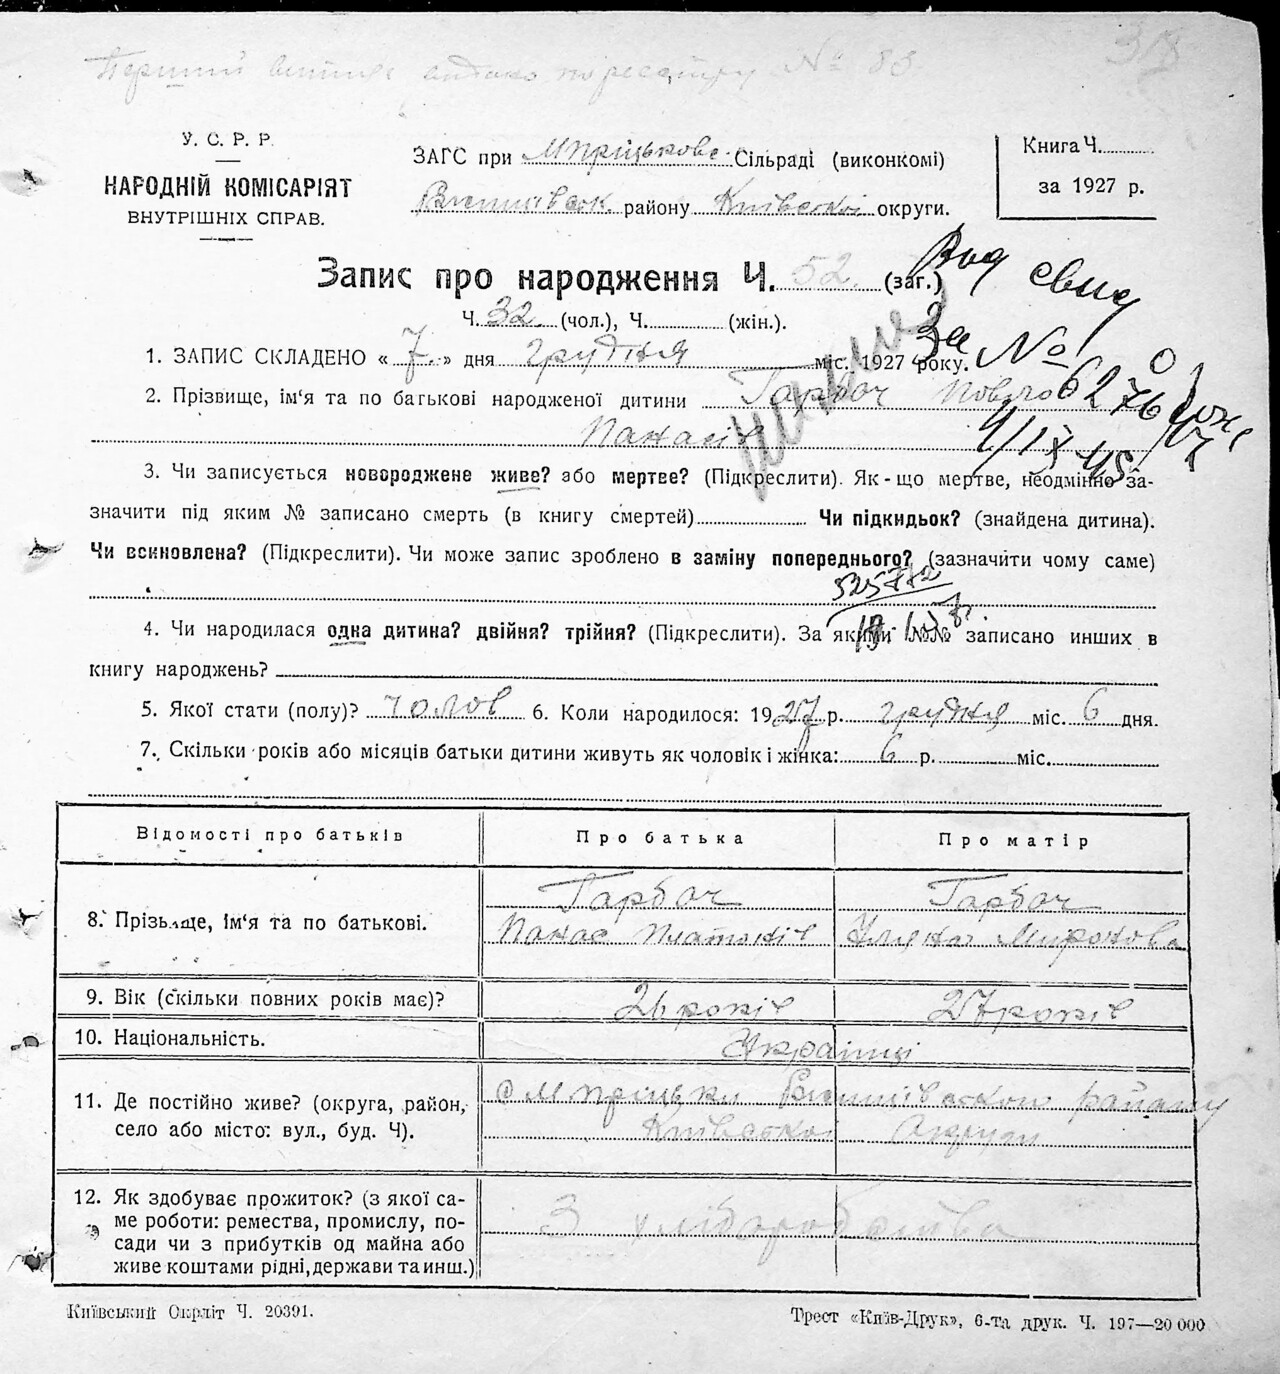 Перший витяг видано по реєстру № 83
У. С. Р. Р.
НАРОДНІЙ КОМІСАРІЯТ
ВНУТРІШНІХ СПРАВ.
ЗАГС при Мирцькове Сільраді (виконкомі)
району Київської округи.
Книга Ч.
за 1927 р.
Запис про народження Ч. 52. (заг.)
Ч. 32. (чол.), Ч. (жін.).
Вид свид
За №
1. ЗАПИС СКЛАДЕНО « 7. » дня грудня міс. 1927 року.
2. Прізвище, ім‘я та по батькові народженої дитини Гарбоч
Панасів
3. Чи записується новороджене живе? або мертве? (Підкреслити). Як-що мертве, неодмінно за-
значити під яким № записано смерть (в книгу смертей) Чи підкидьок? (знайдена дитина).
Чи всиновлена? (Підкреслити). Чи може запис зроблено в заміну попереднього? (зазначити чому саме)
4. Чи народилася одна дитина? двійня? трійня? (Підкреслити). За якими №№ записано инших в
книгу народжень?
5. Якої стати (полу)? чолов 6. Коли народилося: 1927 р. грудня міс. 6 дня.
7. Скільки років або місяців батьки дитини живуть як чоловік і жінка: 6 р. міс.
Відомості про батьків Про батька Про матір
8. Прізвище, ім‘я та по батькові.
Гарбоч Гарбоч
Панас Платонів Уляна Миронова
9. Вік (скільки повних років має)? 26 років 27 років
10. Національність. Українці
11. Де постійно живе? (округа, район,
село або місто: вул., буд. Ч).
району
Київської Округи
12. Як здобуває прожиток? (з якої са-
ме роботи: ремества, промислу, по-
сади чи з прибутків од майна або
живе коштами рідні, держави та инш.)
З хліборобства
Київський Окрліт Ч. 20391.
Трест «Київ-Друк», 6-та друк. Ч. 197—20 000